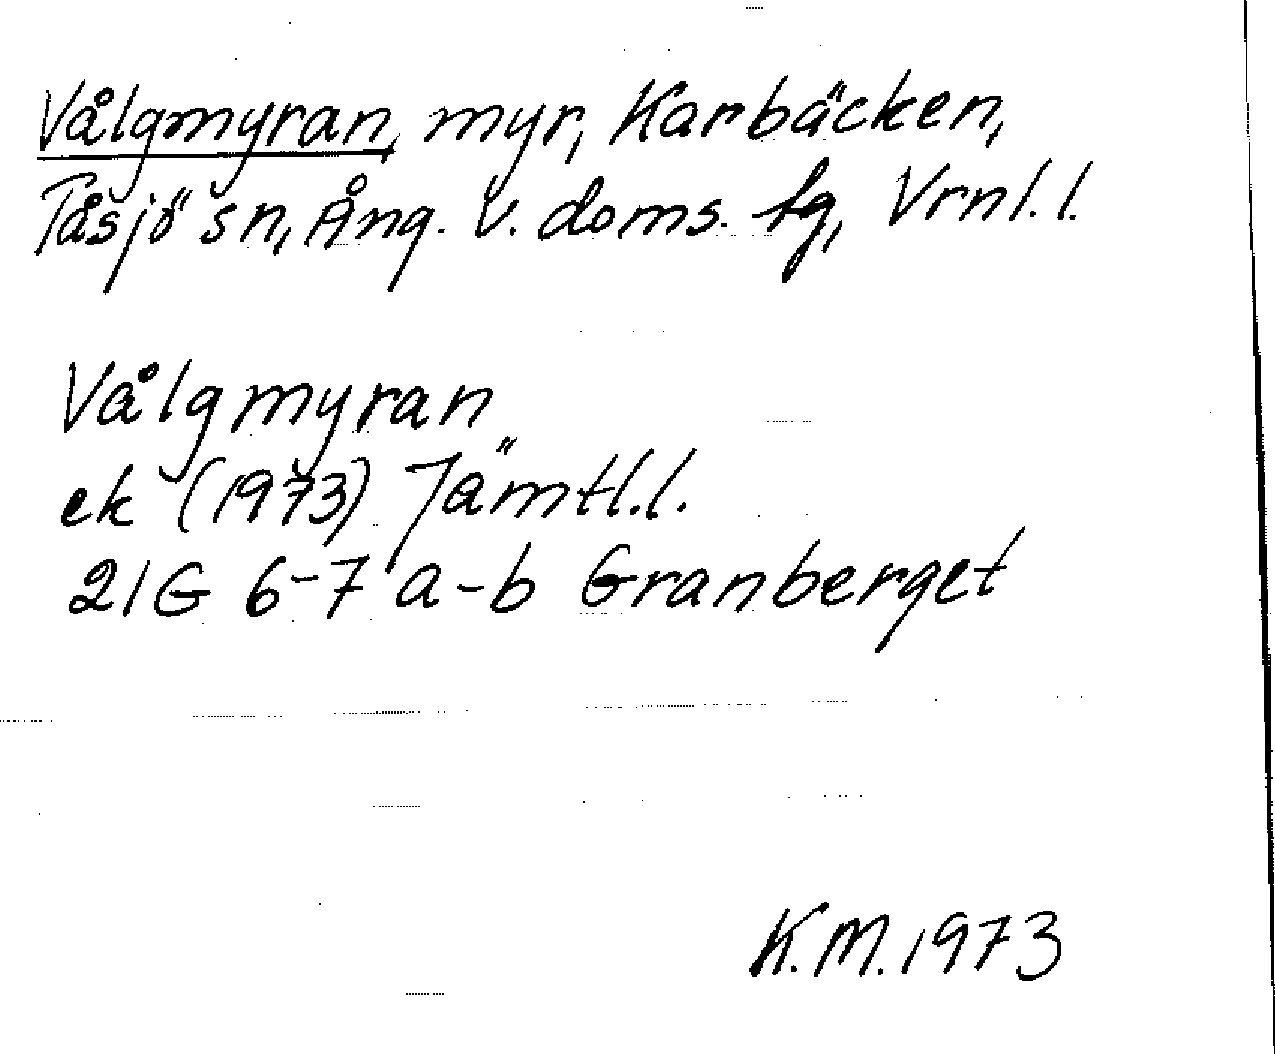 Vålgmyran, myr, Karbäcken,
Tåsjö sn, Ång. v. doms. fg, Vrnl. l.
Vålgmyran
ek (1973) Jämtl. l.
21G 6-7 a-b Granberget
K.M. 1973